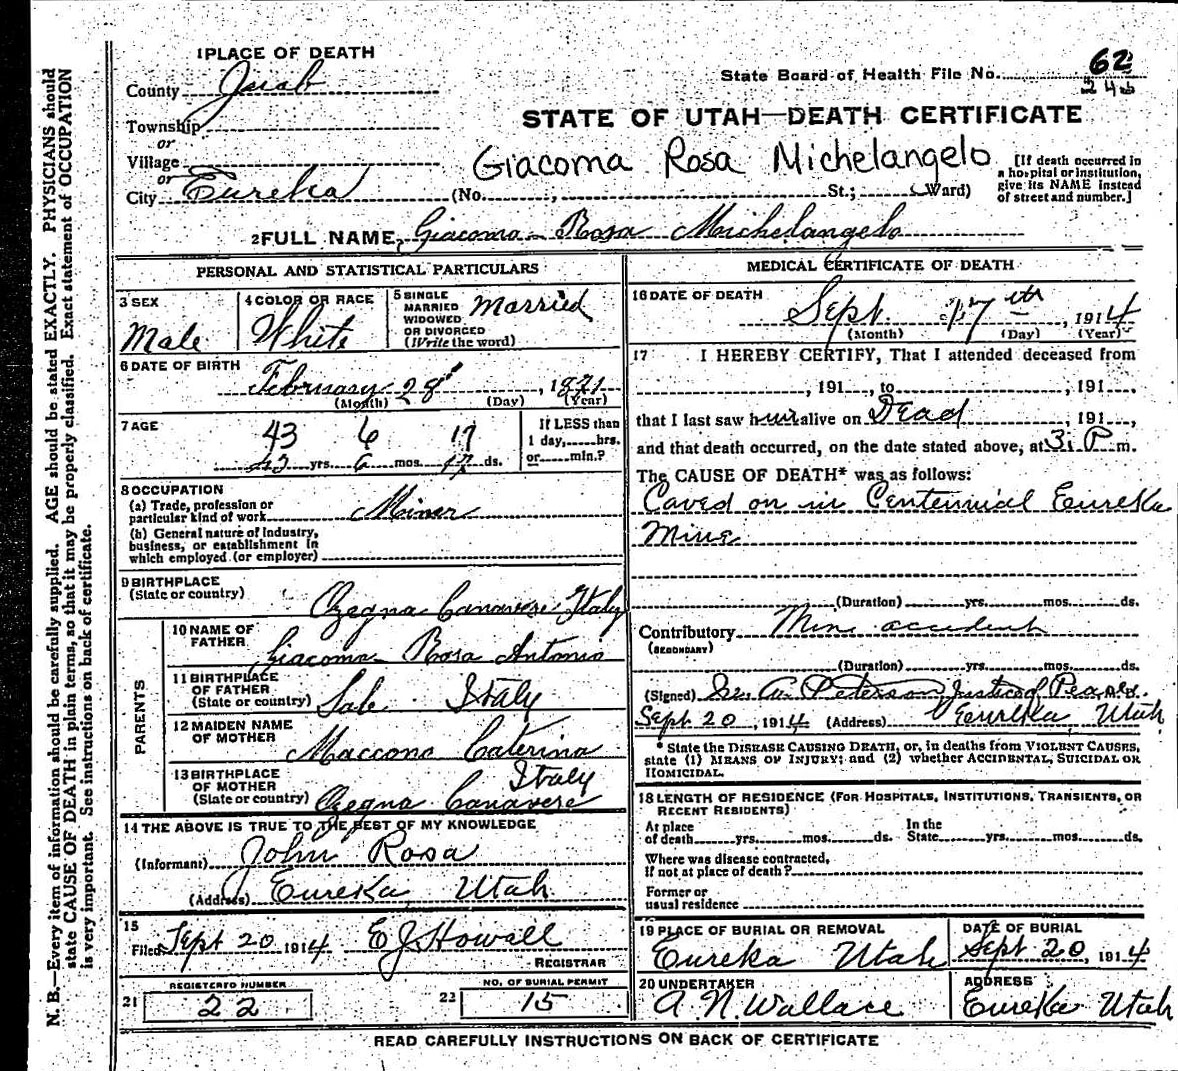 1 PLACE OF DEATH
County Juab
Township
or
Village
or
City Eureka (No. St.; Ward)
State Board of Health File No. 62
245
STATE OF UTAH—DEATH CERTIFICATE
Giacoma Rosa Michelangelo
[If death occurred in
a hospital or institution,
give its NAME instead
of street and number.]
2 FULL NAME Giacoma Rosa Michelangelo
PERSONAL AND STATISTICAL PARTICULARS
3 SEX
Male
4 COLOR OR RACE
White
5 SINGLE
MARRIED
WIDOWED
OR DIVORCED
(Write the word)
Married
6 DATE OF BIRTH
February 28, 1871
(Month) (Day) (Year)
7 AGE
43 6 17
43 yrs. 6 mos. 17 ds.
If LESS than
1 day, hrs.
or min.?
8 OCCUPATION
(a) Trade, profession or
particular kind of work Miner
(b) General nature of industry,
business, or establishment in
which employed (or employer)
9 BIRTHPLACE
(State or country) Ozegna Canavese Italy
PARENTS
10 NAME OF
FATHER Giacoma Rosa Antonio
11 BIRTHPLACE
OF FATHER
(State or country) Italy
12 MAIDEN NAME
OF MOTHER Maccono Caterina
13 BIRTHPLACE
OF MOTHER
(State or country) Italy
Ozegna Canavese
14 THE ABOVE IS TRUE TO THE BEST OF MY KNOWLEDGE
(Informant) John Rosa
(Address) Eureka, Utah
15
Filed Sept 20 1914 E J Howell
REGISTRAR
REGISTERED NUMBER
21 22
NO. OF BURIAL PERMIT
22 15
MEDICAL CERTIFICATE OF DEATH
16 DATE OF DEATH
Sept. 17th, 1914
(Month) (Day) (Year)
17 I HEREBY CERTIFY, That I attended deceased from
, 191 , to , 191 ,
that I last saw him alive on Dead , 191 ,
and that death occurred, on the date stated above, at 3. P. m.
The CAUSE OF DEATH* was as follows:
Caved on in Centennial Eureka
Mine
(Duration) yrs. mos. ds.
Contributory Mine accident
(SECONDARY)
(Duration) yrs. mos. ds.
(Signed) A. Peterson Justice of Peace M.D.
Sept 20, 1914 (Address) Eureka, Utah
* State the DISEASE CAUSING DEATH, or, in deaths from VIOLENT CAUSES,
state (1) MEANS OF INJURY; and (2) whether ACCIDENTAL, SUICIDAL OR
HOMICIDAL.
18 LENGTH OF RESIDENCE (FOR HOSPITALS, INSTITUTIONS, TRANSIENTS, OR
RECENT RESIDENTS)
At place
of death yrs. mos. ds.
In the
State yrs. mos. ds.
Where was disease contracted,
if not at place of death?
Former or
usual residence
19 PLACE OF BURIAL OR REMOVAL
Eureka Utah
DATE OF BURIAL
Sept 20, 1914
20 UNDERTAKER
A. N. Wallace
ADDRESS
Eureka Utah
READ CAREFULLY INSTRUCTIONS ON BACK OF CERTIFICATE
N. B.—Every item of information should be carefully supplied. AGE should be stated EXACTLY. PHYSICIANS should
state CAUSE OF DEATH in plain terms, so that it may be properly classified. Exact statement of OCCUPATION
is very important. See instructions on back of certificate.